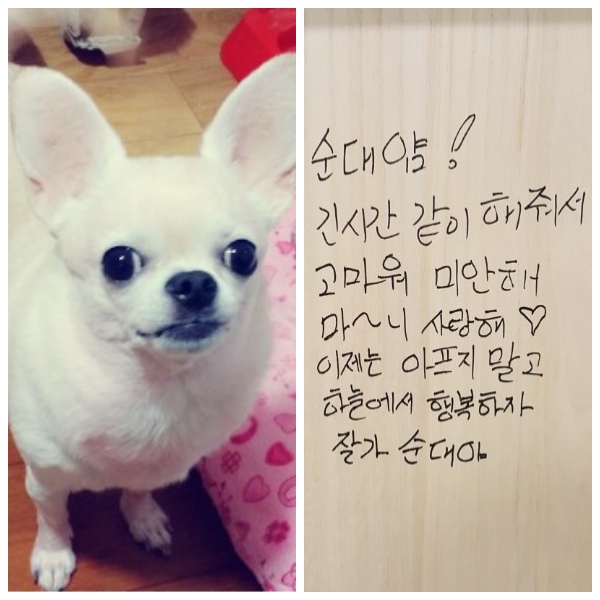 순대얌!
긴시간 같이 해줘서
고마워 미안해
마~니 사랑해♡
이제는 아프지 말고
하늘에서 행복하자
잘가 순대야